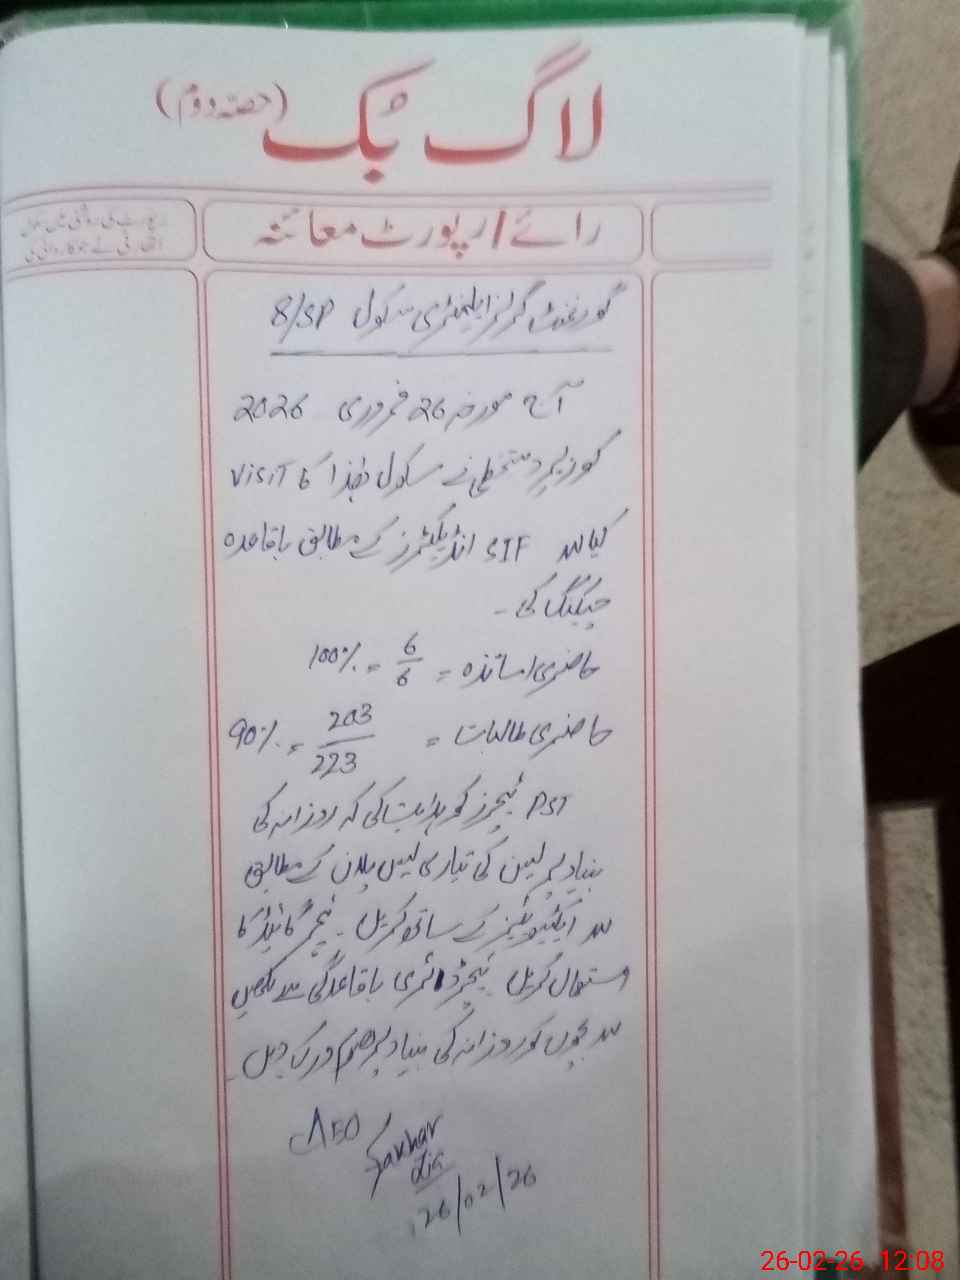 لاگ بُک (حصہ دوم)
رائے / رپورٹ معائنہ
رپورٹ کی روشنی میں سکول
اتھارٹی نے جو کاروائی کی
گورنمنٹ گرلز ایلیمنٹری سکول 8/SP
آج مورخہ 26 فروری 2026
کو زیر دستخطی نے سکول ھٰذا کا VISIT
کیا اور SIF انڈیکیٹرز کے مطابق باقاعدہ
چیکنگ کی۔
حاضری اساتذہ = 6/6 = 100%
حاضری طالبات = 203/223 = 90%
PST ٹیچرز کو ہدایت کی کہ روزانہ کی
بنیاد پر لیسن کی تیاری لیسن پلان کے مطابق
اور ایکٹیویٹیز کے ساتھ کریں۔ ٹیچر گائیڈ کا
استعمال کریں۔ ٹیچر ڈائری باقاعدگی سے لکھیں
اور بچوں کو روزانہ کی بنیاد پر ھوم ورک دیں۔
AEO
26/02/26
26-02-26 12:08